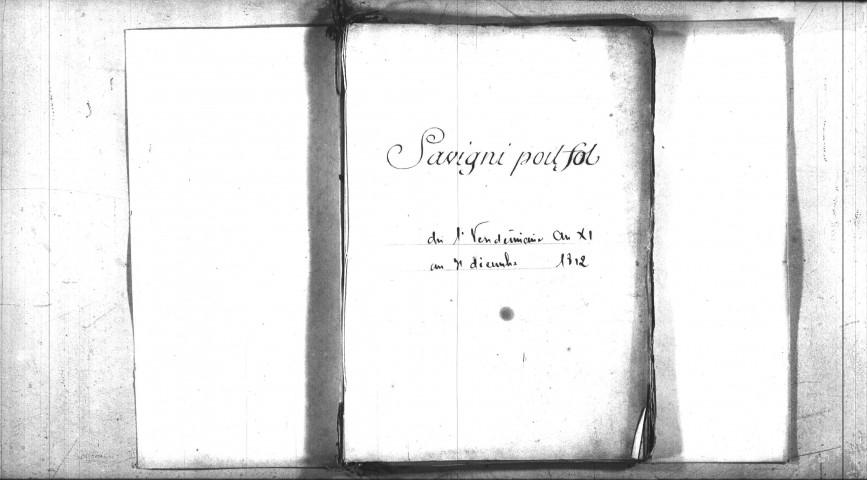 Savigni poil fol
du 1r Vendémiaire An XI
au 31 décembre 1812